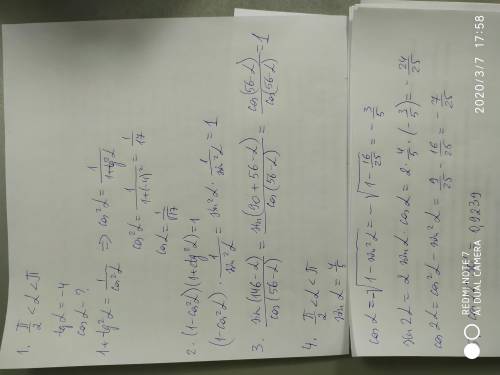 1. π/2 < α < π
tg α = -4
cos α - ?
1 + tg²α = 1/cos²α ⇒ cos²α = 1/(1+tg²α)
cos²α = 1/(1+(-4)²) = 1/17
cos α = 1/√17
2. (1-cos²α)(1+ctg²α) = 1
(1-cos²α) · 1/sin²α = sin²α · 1/sin²α = 1
3. sin(146-α)/cos(56-α) = sin(90+56-α)/cos(56-α) = cos(56-α)/cos(56-α) = 1
4. π/2 < α < π
sin α = 4/5
cos α = -√(1-sin²α) = -√(1-16/25) = -3/5
sin 2α = 2 sin α · cos α = 2 · 4/5 · (-3/5) = -24/25
cos 2α = cos²α - sin²α = 9/25 - 16/25 = -7/25
0,9239
REDMI NOTE 7
AI DUAL CAMERA
2020/3/7 17:58